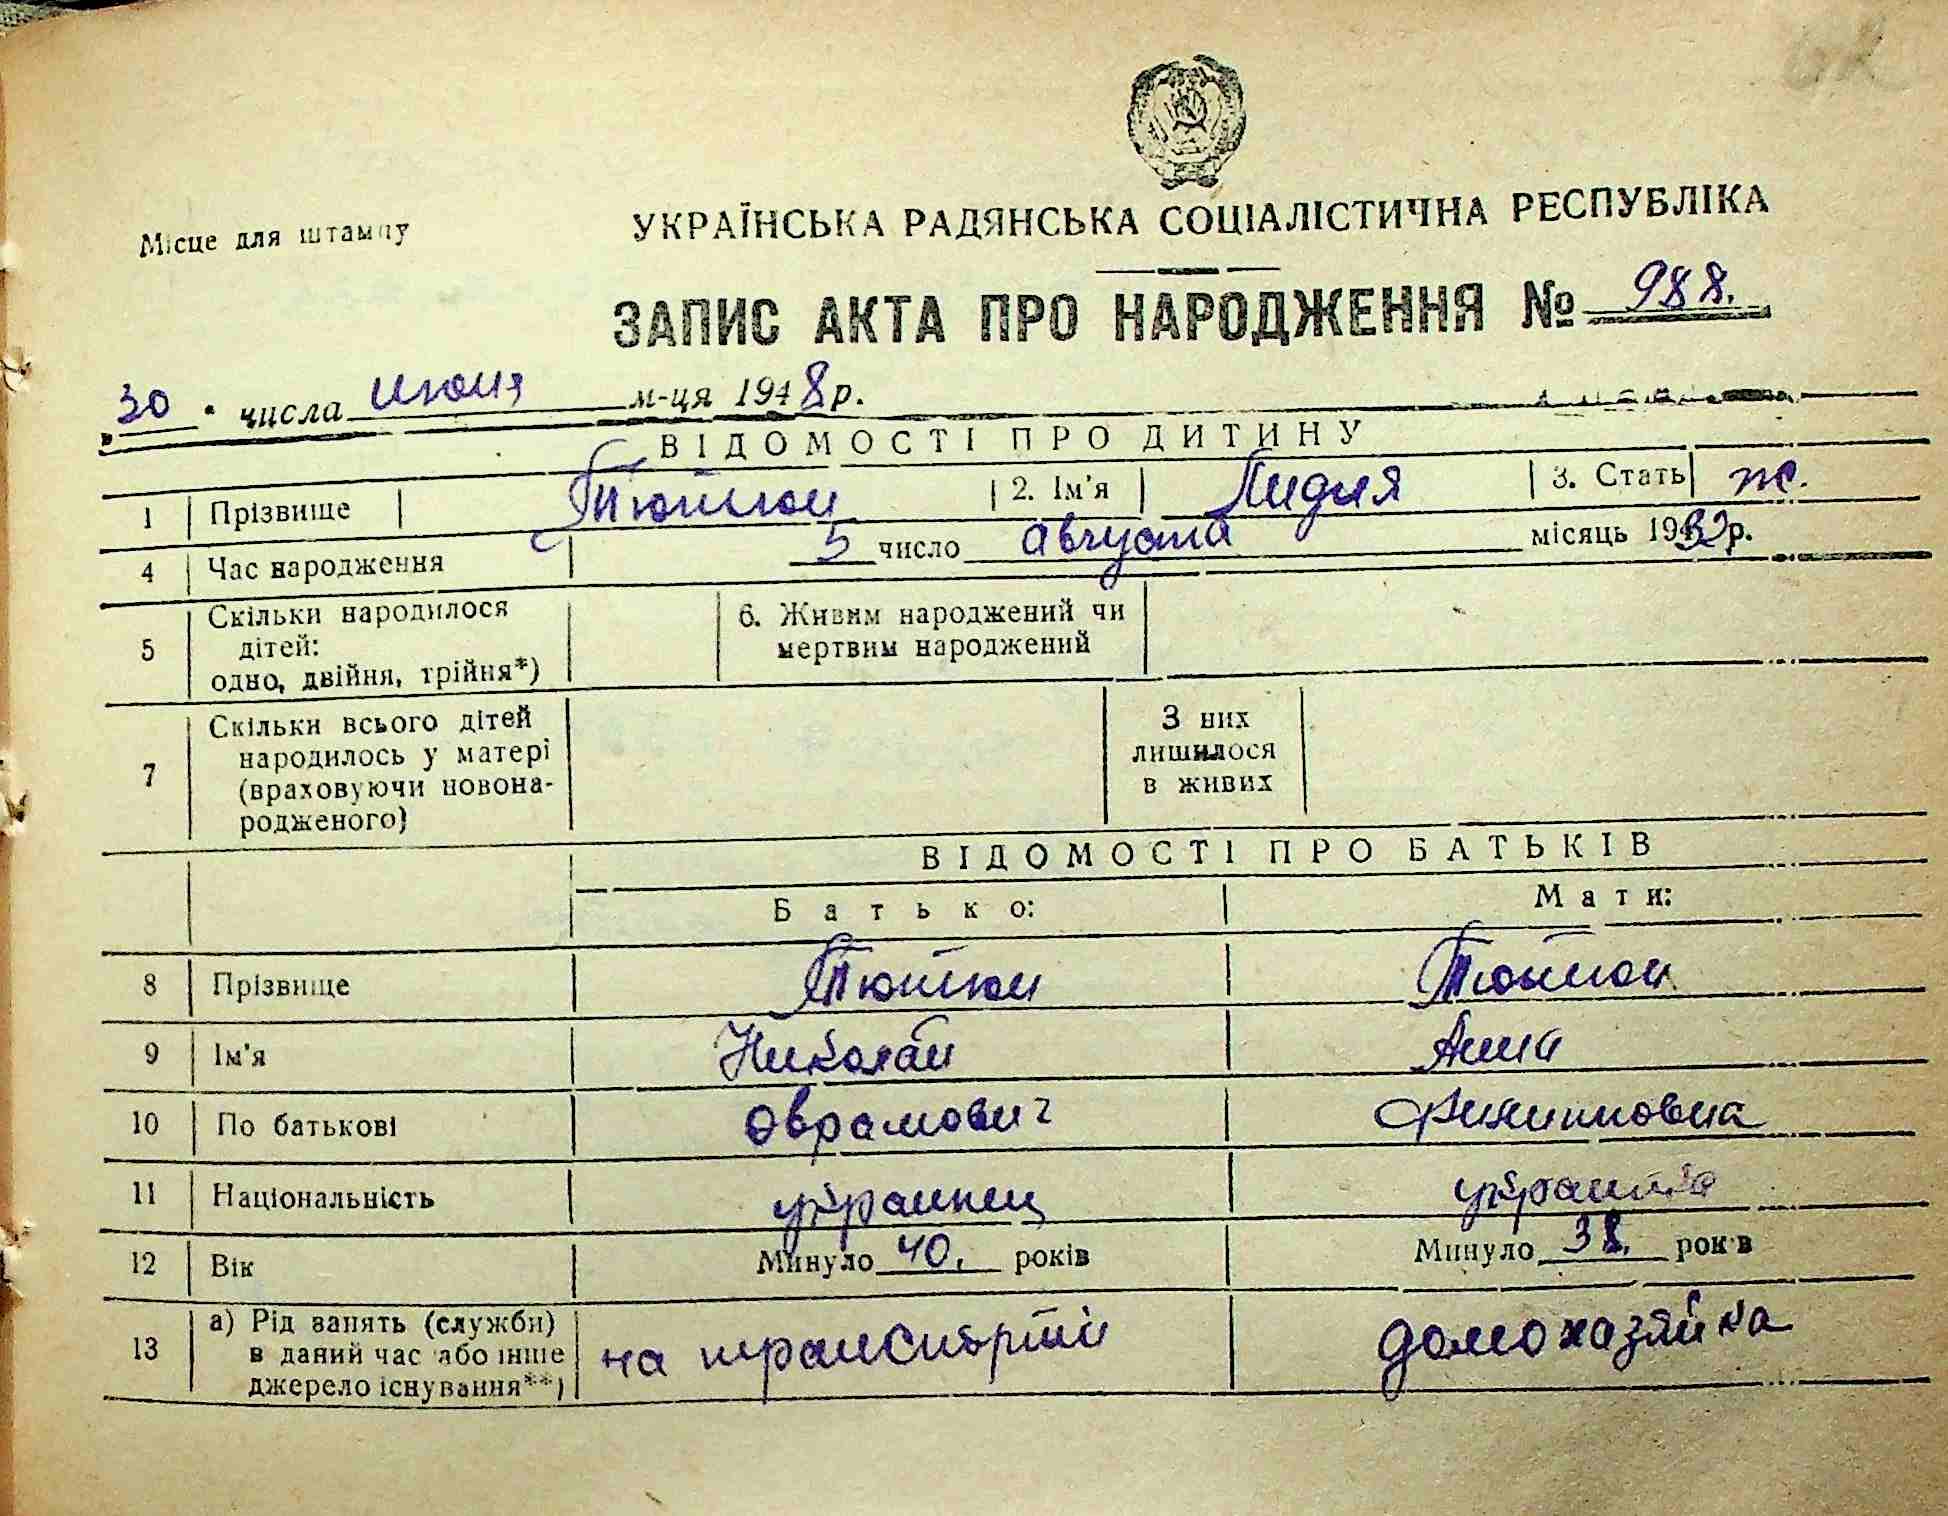 Місце для штампу
УКРАЇНСЬКА РАДЯНСЬКА СОЦІАЛІСТИЧНА РЕСПУБЛІКА
ЗАПИС АКТА ПРО НАРОДЖЕННЯ № 988.
30 числа июня м-ця 1948 р.
ВІДОМОСТІ ПРО ДИТИНУ
1 Прізвище Тютюн 2. Ім'я Лидия 3. Стать ж.
4 Час народження 5 число августа місяць 1932 р.
5 Скільки народилося дітей: одно, двійня, трійня*) 6. Живим народжений чи мертвим народжений
7 Скільки всього дітей народилось у матері (враховуючи новонародженого) З них лишилося в живих
ВІДОМОСТІ ПРО БАТЬКІВ
Батько: Мати:
8 Прізвище Тютюн Тютюн
9 Ім'я Николай Анна
10 По батькові Оврамович Филипповна
11 Національність украинец украинка
12 Вік Минуло 40. років Минуло 38. років
13 а) Рід занять (служби) в даний час або інше джерело існування**) на транспорті домохазяйка